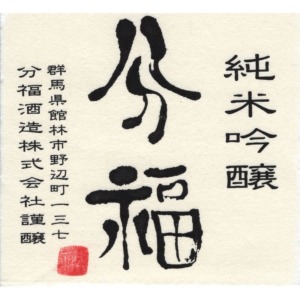 純米吟醸
分福
群馬県館林市野辺町一三七
分福酒造株式会社謹醸